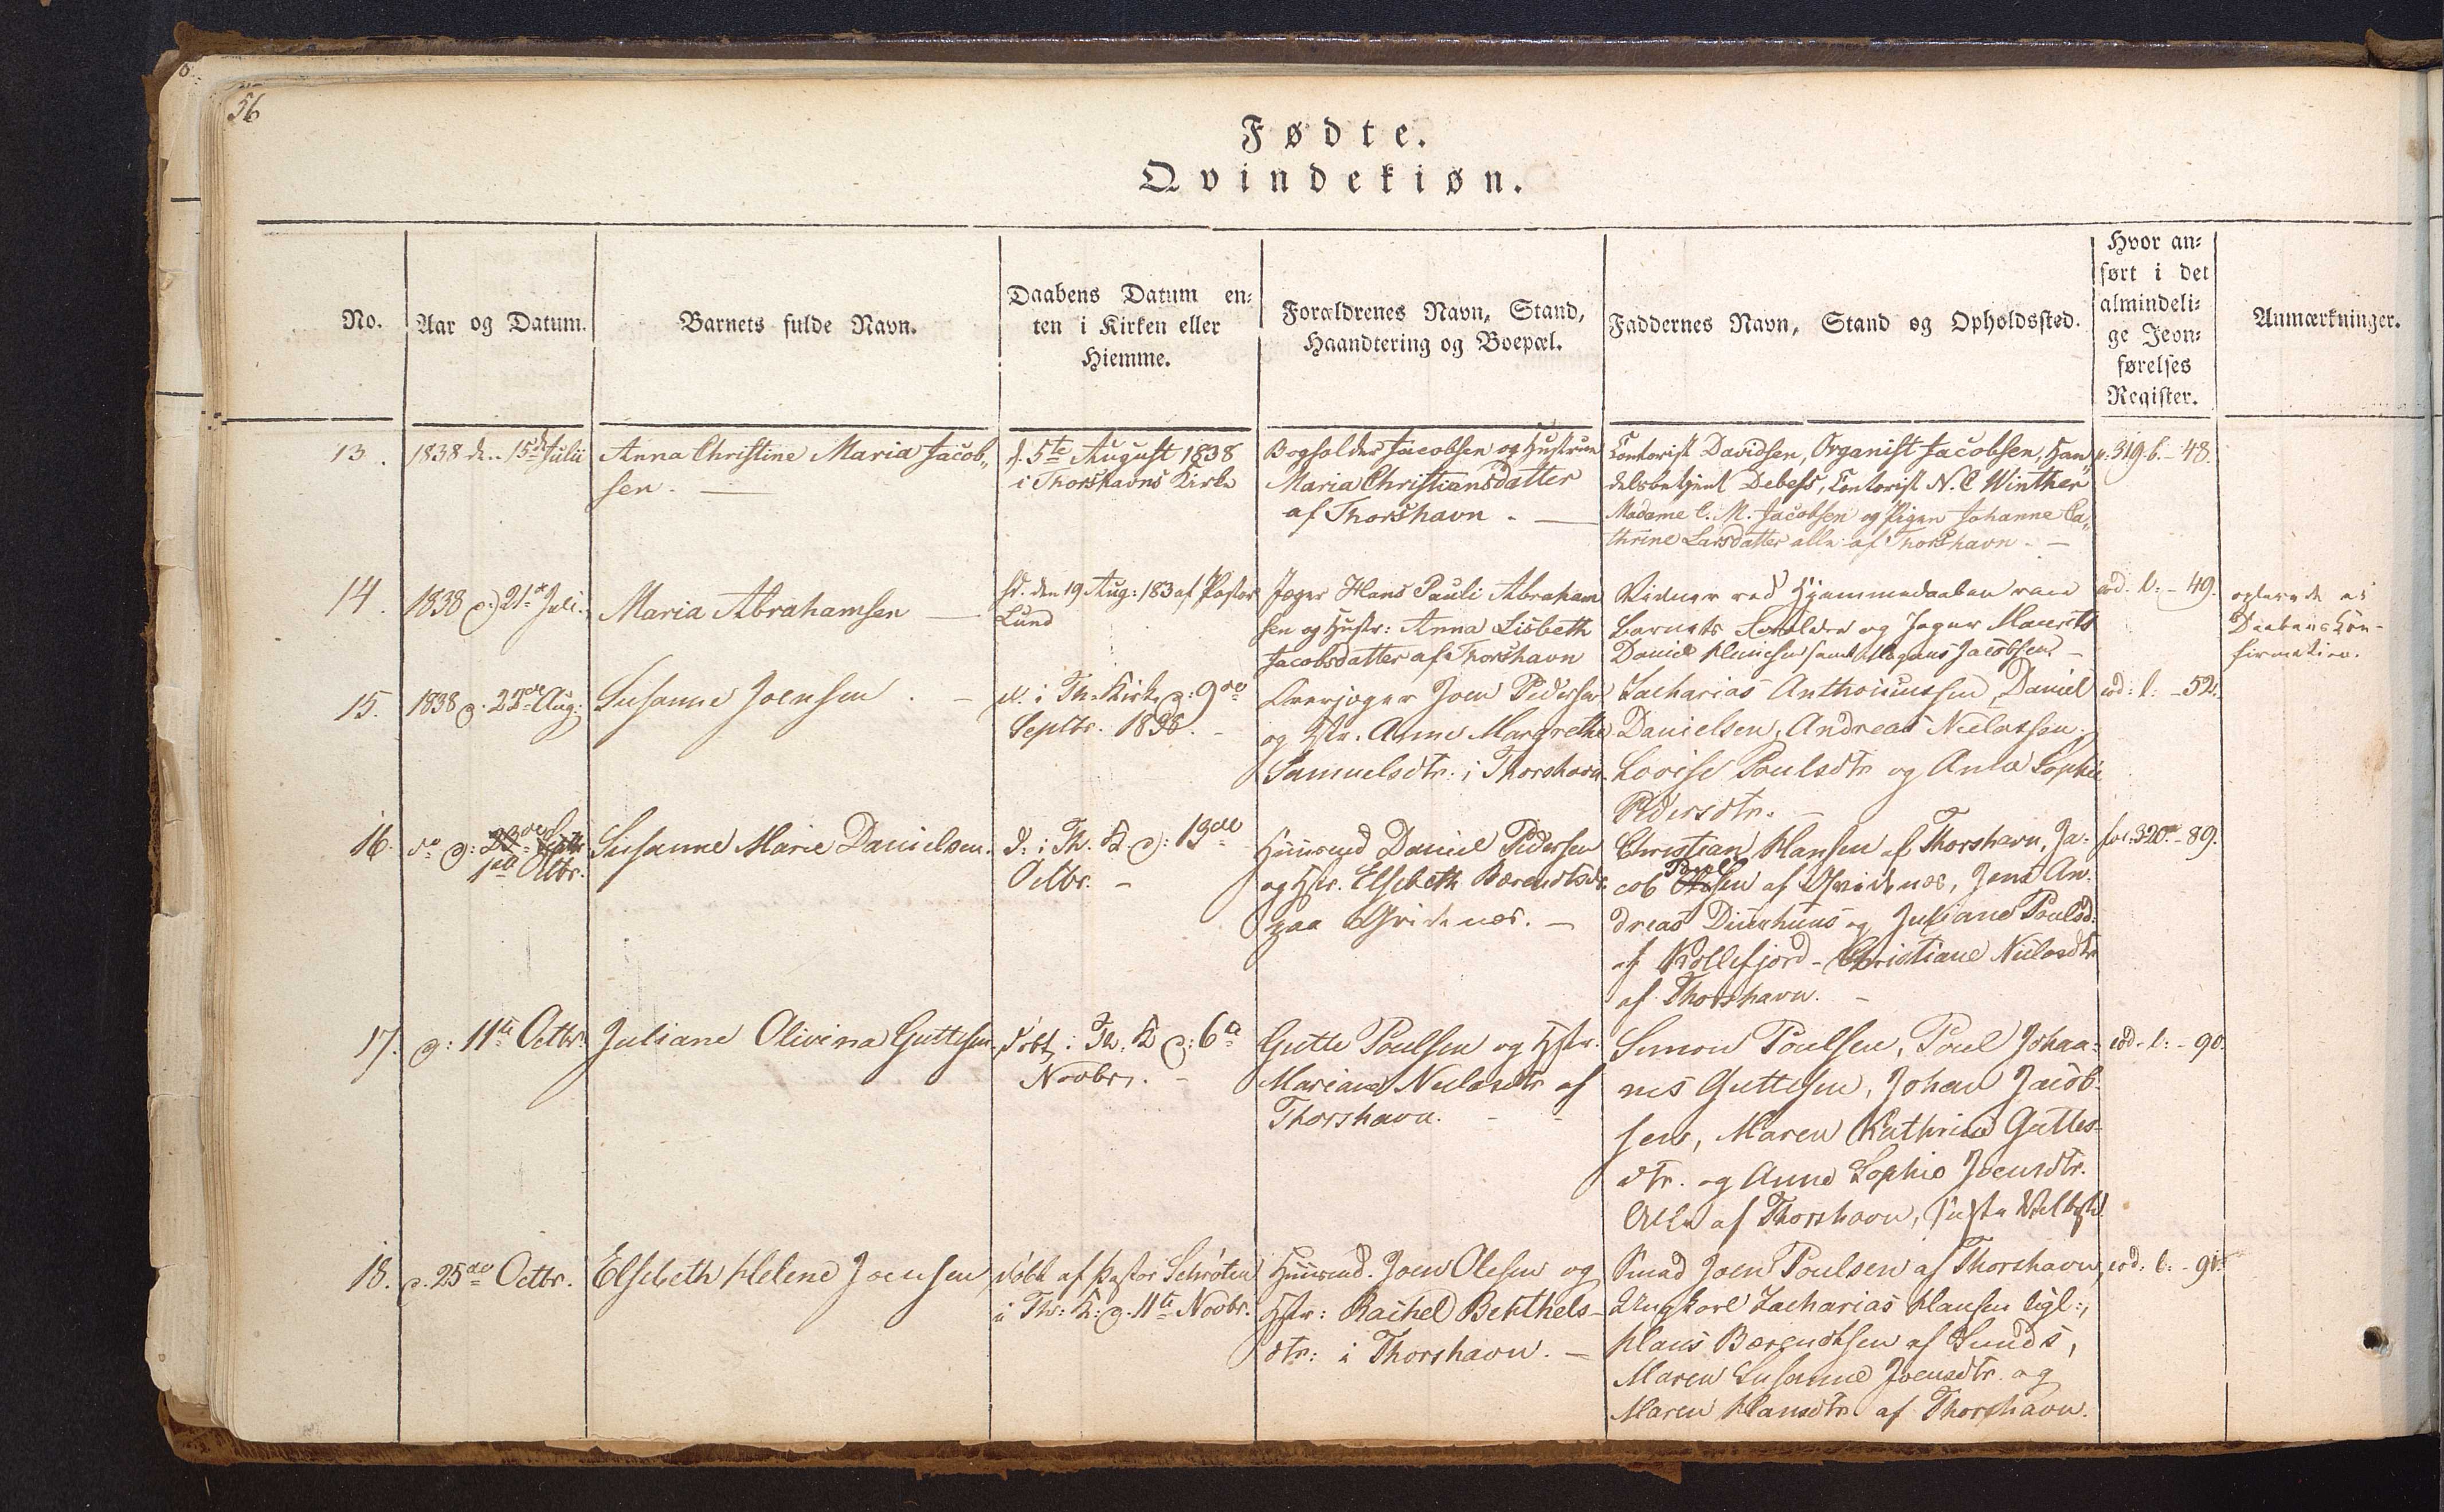 56
Fødte.
Qvindekiøn.
No.
Aar og Datum.
Barnets fulde Navn.
Daabens Datum en-
ten i Kirken eller
Hiemme.
Forældrenes Navn, Stand,
Haandtering og Boepæl.
Faddernes Navn, Stand og Opholdssted.
Hvor an-
ført i det
almindeli-
ge Jevn-
førelses
Register.
Anmærkninger.
13.
1838 d. 15de Julii
Anna Christine Maria Jacob„
sen. —
d. 5te August 1838
i Thorshavns Kirke
Bogholder Jacobsen og Hustrue
Maria Christiansdatter
af Thorshavn. —
Contorist Davidsen, Organist Jacobsen, Han„
delsbetjent Debess, Contorist N. C Winther
Madame C. M. Jacobsen og Pigen Johanne Ca„
thrine Larsdatter alle af Thorshavn. —
p. 319 b. - 48.
14.
1838 d: 21de Juli.
Maria Abrahamsen —
d. den 19 Aug: 183 af Pastor
Lund
Jæger Hans Pauli Abraham
sen og Hustr: Anna Lisbeth
Jacobsdatter af Thorshavn
Vidner ved Hjemmedaaben vare
Barnets Forældre og Jæger Maurits
Daniel samt Mogens Jacobsen. —
eod. l: - 49.
Daabens Con-
firmation.
15.
1838 d. 22de Aug:
Susanne Joensen. —
d. i Th. Kirke d: 9de
Septbr. 1838. -
Joen Pedersen
og Hstr. Anne Margrethe
Samuelsdtr. i Thorshavn.
Zacharias Anthoniussen, Daniel
Danielsen, Andreas Nielassen,
Lovise Poulsdtr og Anne Sophie
Pedersdtr. —
eod: l: - 52.
16.
do d: 23de Septbr
1ste Octbr.
Susanne Marie Danielsen.
d. i Th. K. d: 13de
Octbr. —
Huusmd Daniel Pedersen
og Hstr. Elsebeth Bærendtsdtr.
paa Hvidenæs. —
Christian Hansen af Thorshavn, Ja-
cob Poulsen af Hvidenæs, Jens An-
dreas Diurhuus og Juliane Poulsd.
af Kollefjord - Christiane Nielasdtr
af Thorshavn. —
fol: 320a - 89.
17.
d: 11te Octbr.
Juliane Olivina Guttesen.
døbt i Th. K d: 6te
Novbr. -
Gutte Poulsen og Hstr.
Mariane Nielasdtr af
Thorshavn. - -
Simon Poulsen, Poul Johan-
nes Guttesen, Johan Jacob-
sen, Maren Kathrine Guttes-
dtr. og Anne Sophie Joensdtr.
Alle af Thorshavn,
eod. l: - 90.
18.
d. 25de Octbr.
Elsebeth Helene Joensen
døbt af Pastor Schrøter
i Th: K: d. 11te Novbr.
Huusmd. Joen Olesen og
Hstr: Rachel Berthels-
dtr: i Thorshavn. —
Smed Joen Poulsen af Thorshavn,
Ungkarl Zacharias Hansen ligl:,
Hans Bærendtsen af Sunds,
Maren Susanne Joensdtr. og
Maren Hansdtr. af Thorshavn.
eod: l: - 91.